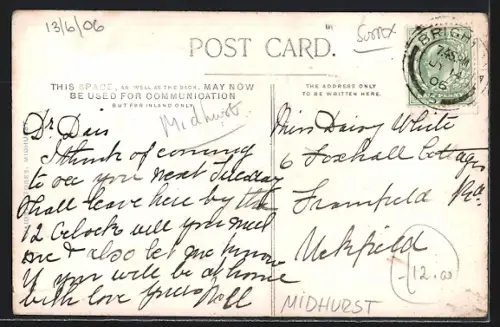 13/6/06
Sussex
POST CARD.
BRIGHT
7.45 PM
JU 14
06
THIS SPACE, AS WELL AS THE BACK, MAY NOW
BE USED FOR COMMUNICATION
BUT FOR INLAND ONLY.
THE ADDRESS ONLY
TO BE WRITTEN HERE.
Midhurst
Dr Dais
I think of coming
to see you next Tuesday
Shall leave here by the
12 Oclock will you meet
me & also let me know
if you will be at home
with love yours Nell
Miss Daisy White
6 Foxhall Cottages
Framfield Rd
Uckfield
12.00
MIDHURST